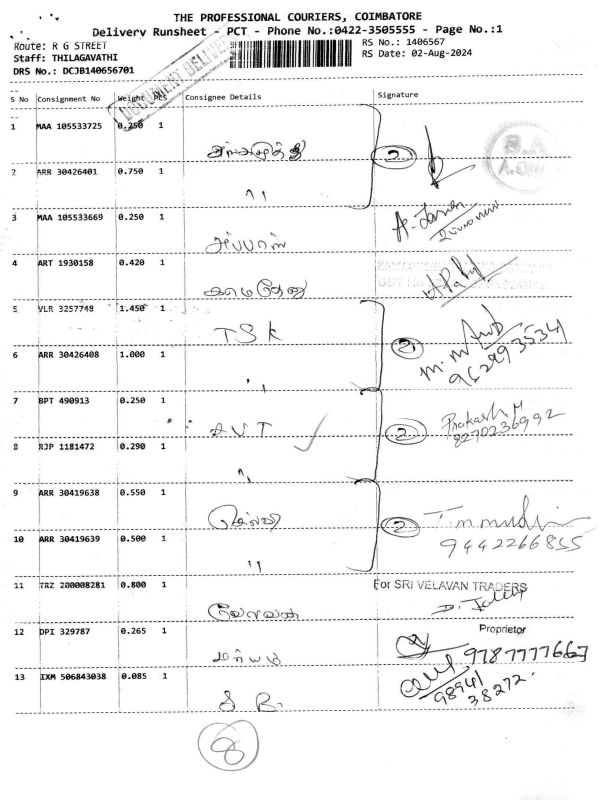 THE PROFESSIONAL COURIERS, COIMBATORE
Delivery Runsheet - PCT - Phone No.:0422-3505555 - Page No.:1
Route: R G STREET
RS No.: 1406567
Staff: THILAGAVATHI
RS Date: 02-Aug-2024
DRS No.: DCJB140656701
S No Consignment No Weight Pcs Consignee Details Signature
1 MAA 105533725 0.250 1 2
2 ARR 30426401 0.750 1 "
3 MAA 105533669 0.250 1 அப்பாஸ்
4 ART 1930158 0.420 1 காமதேனு
5 VLR 3257748 1.450 1 TSK
6 ARR 30426408 1.000 1 " 2 9629935341
7 BPT 490913 0.250 1 SVT Prakash M
8 RJP 1181472 0.290 1 " 2 8270236992
9 ARR 30419638 0.550 1
10 ARR 30419639 0.500 1 " 2 9442266855
11 TRZ 200008281 0.800 1 வேலவன் For SRI VELAVAN TRADERS
Proprietor
12 DPI 329787 0.265 1 மர்யம் 9787777663
13 IXM 506843038 0.085 1 S B. 98941 38272
8